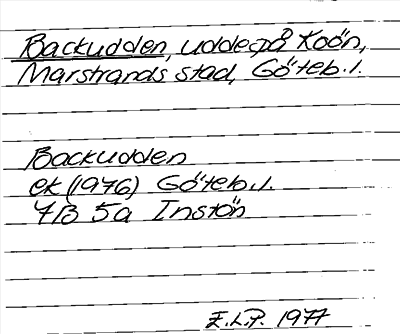 Backudden, udde på Koön,
Marstrands stad, Göteb.l.
Backudden
ek (1976) Göteb.l.
7B 5a Instön
E.L.P. 1977